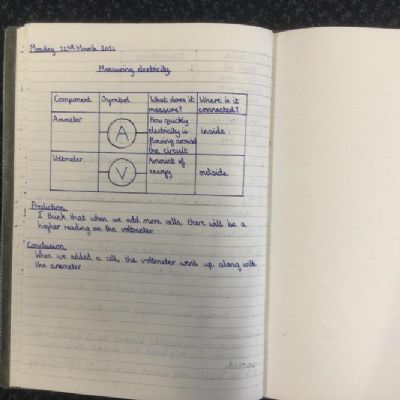 Monday 22nd March 2021
Measuring electricity
Component Symbol What does it measure? Where is it connected?
Ammeter A How quickly electricity is flowing around the circuit inside
Voltmeter V Amount of energy outside
Prediction
I think that when we add more cells, there will be a
higher reading on the voltmeter
Conclusion
When we added a cell, the voltmeter went up along with
the ammeter